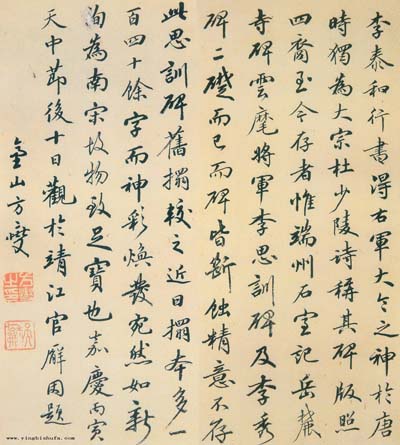 李泰和行書得右軍大令之神於唐
時獨為大宗杜少陵詩稱其碑版照
四裔至今存者惟端州石室記岳麓
寺碑雲麾將軍李思訓碑及李秀
碑二礎而已而碑皆斷蝕精意不存
此思訓碑舊搨較之近日搨本多一
百四十餘字而神彩煥發宛然如新
洵為南宋故物致足寶也嘉慶丙寅
天中節後十日觀於靖江官廨因題
金山方燮
www.yingbishufa.com